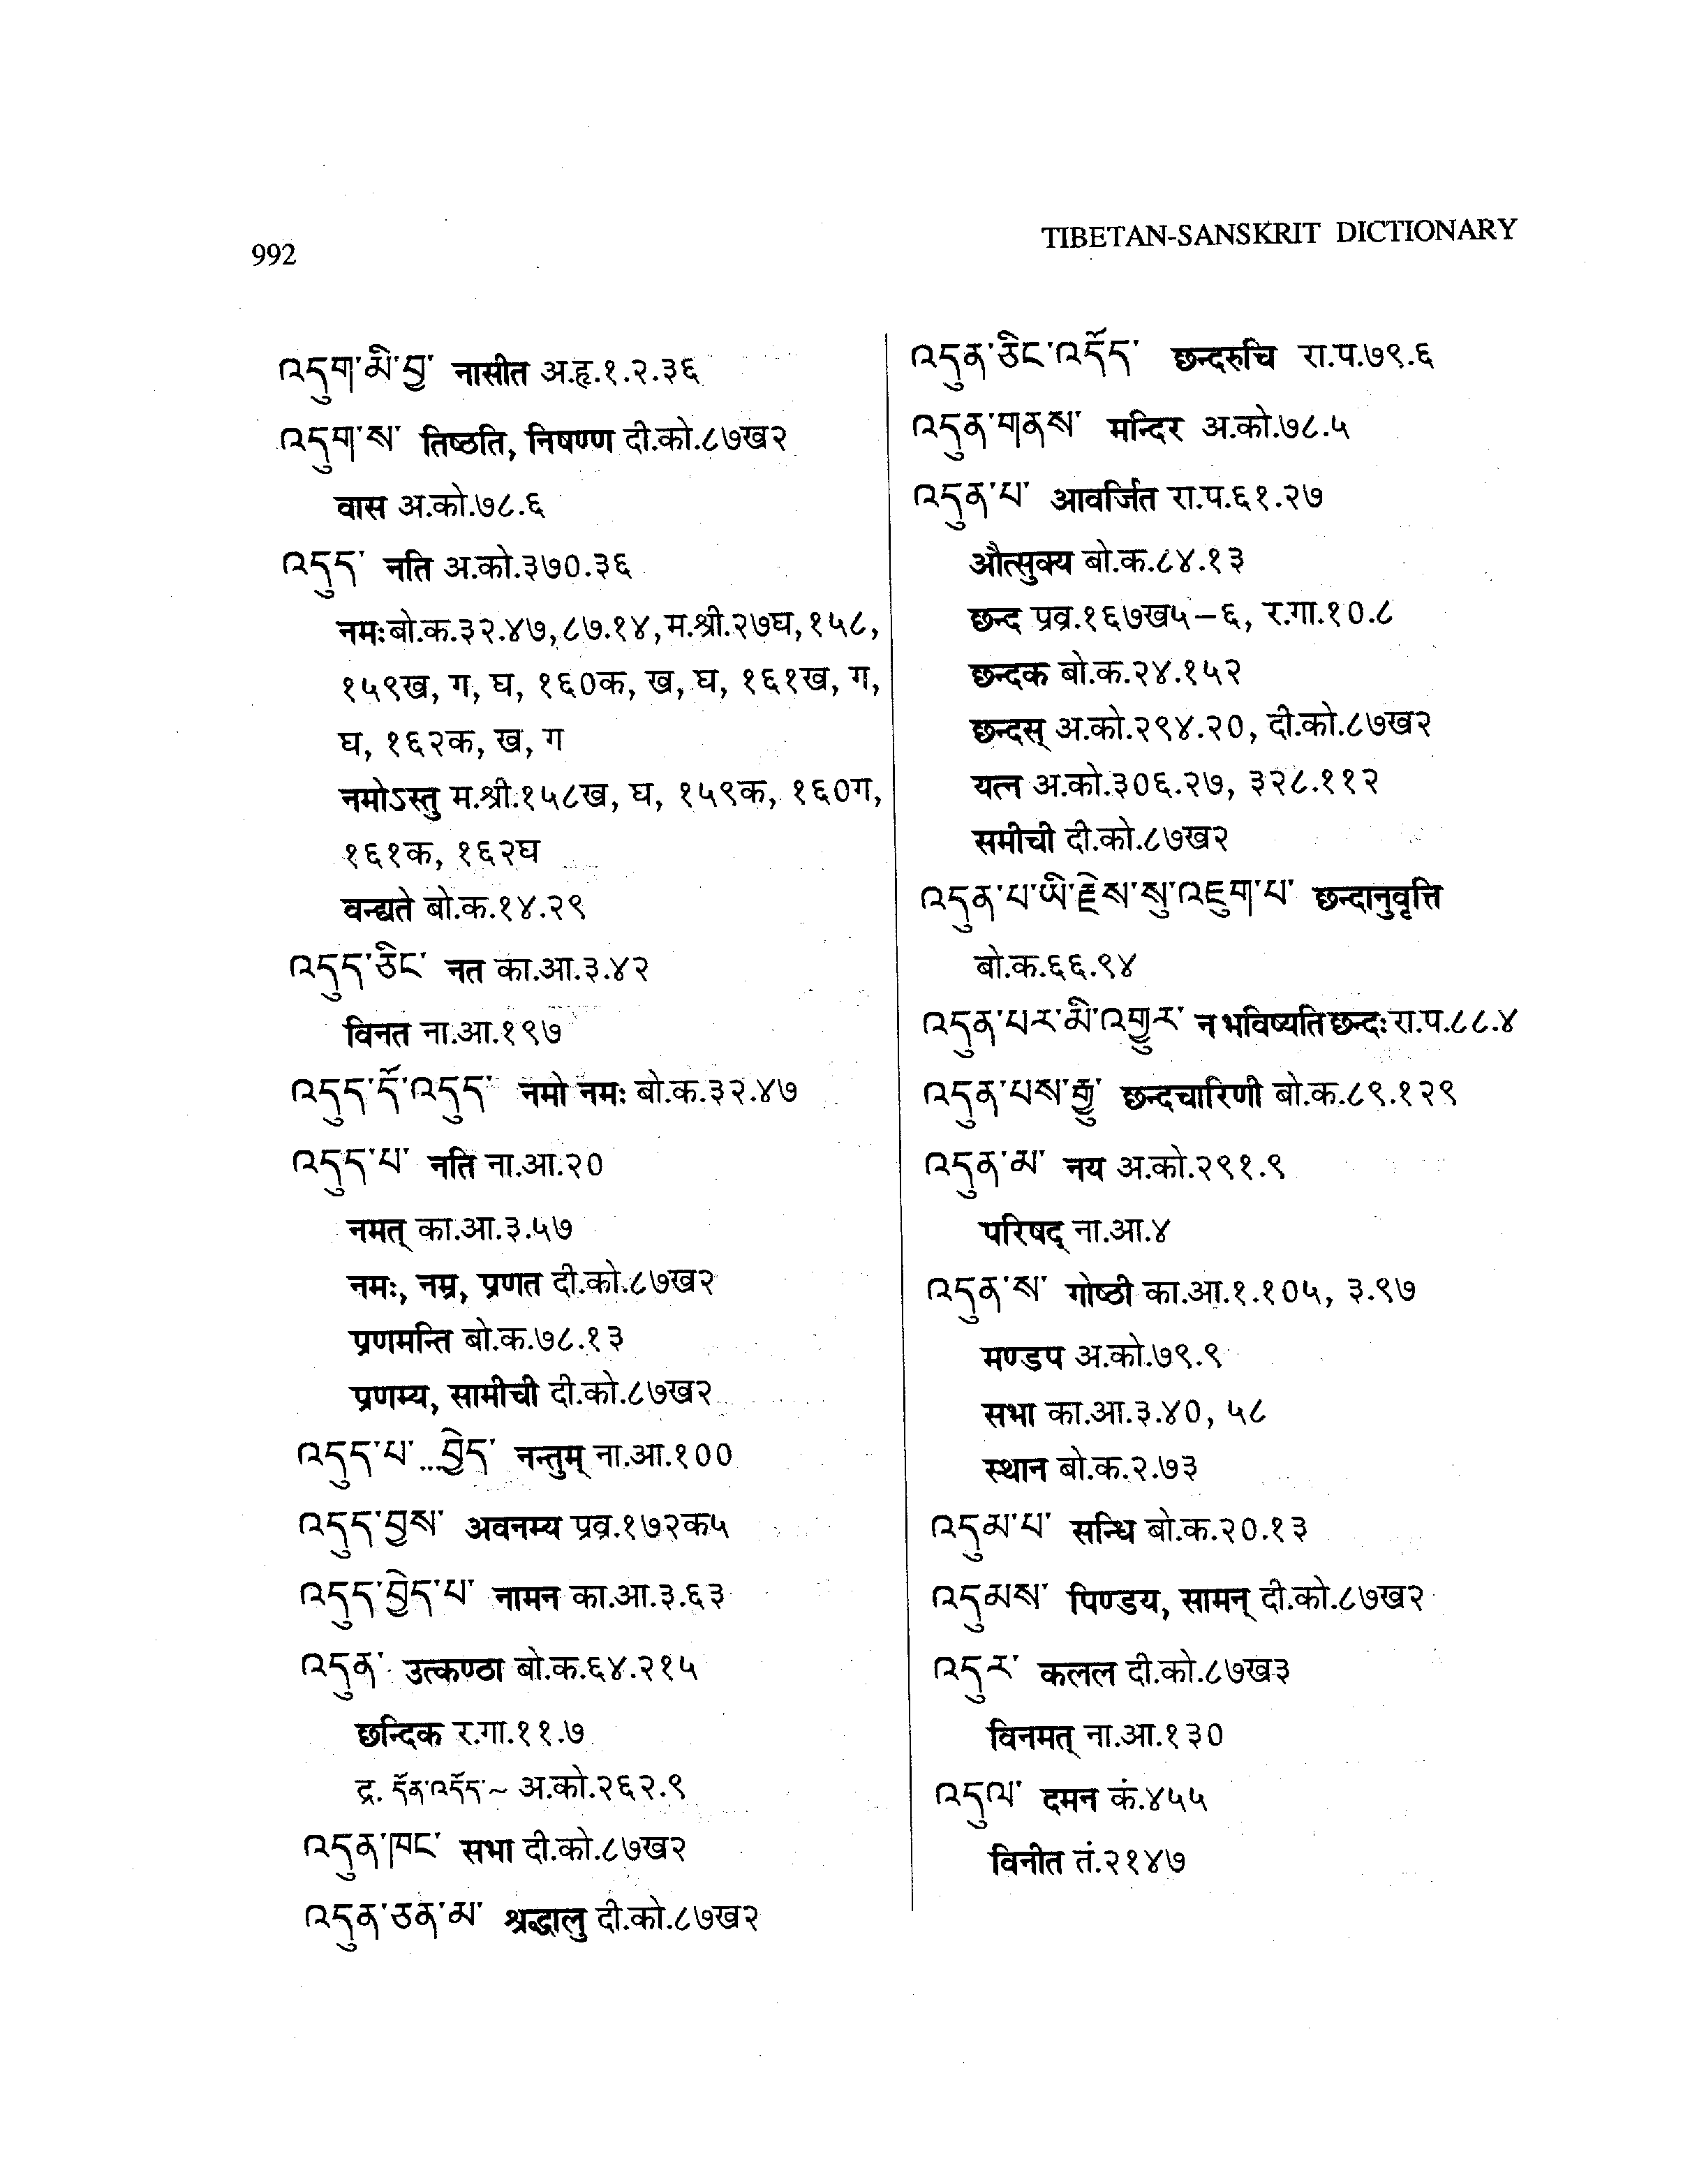 992
TIBETAN-SANSKRIT DICTIONARY
འདུག་མི་བྱ་ नासीत अ.हृ.१.२.३६
འདུག་ས་ तिष्ठति, निषण्ण दी.को.८७ख२
वास अ.को.७८.६
འདུད་ नति अ.को.३७०.३६
नमः बो.क.३२.४७, ८७.१४, म.श्री.२७घ, १५८,
१५९ख, ग, घ, १६०क, ख, घ, १६१ख, ग,
घ, १६२क, ख, ग
नमोऽस्तु म.श्री.१५८ख, घ, १५९क, १६०ग,
१६१क, १६२घ
वन्द्यते बो.क.१४.२९
འདུད་ཅིང་ नत का.आ.३.४२
विनत ना.आ.१९७
འདུད་དོ་འདུད་ नमो नमः बो.क.३२.४७
འདུད་པ་ नति ना.आ.२०
नमत् का.आ.३.५७
नमः, नम्र, प्रणत दी.को.८७ख२
प्रणमन्ति बो.क.७८.१३
प्रणम्य, सामीची दी.को.८७ख२
འདུད་པ་...བྱེད་ नन्तुम् ना.आ.१००
འདུད་བྱས་ अवनम्य प्रव्र.१७२क५
འདུད་བྱེད་པ་ नामन का.आ.३.६३
འདུན་ उत्कण्ठा बो.क.६४.२१५
छन्दिक र.गा.११.७
द्र. དོན་འདོད་~ अ.को.२६२.९
འདུན་ཁང་ सभा दी.को.८७ख२
འདུན་ཅན་མ་ श्रद्धालु दी.को.८७ख२
འདུན་ཅིང་འདོད་ छन्दरुचि रा.प.७९.६
འདུན་གནས་ मन्दिर अ.को.७८.५
འདུན་པ་ आवर्जित रा.प.६१.२७
औत्सुक्य बो.क.८४.१३
छन्द प्रव्र.१६७ख५-६, र.गा.१०.८
छन्दक बो.क.२४.१५२
छन्दस् अ.को.२९४.२०, दी.को.८७ख२
यत्न अ.को.३०६.२७, ३२८.११२
समीची दी.को.८७ख२
འདུན་པ་ཡི་རྗེས་སུ་འཇུག་པ་ छन्दानुवृत्ति
बो.क.६६.९४
འདུན་པར་མི་འགྱུར་ न भविष्यति छन्दः रा.प.८८.४
འདུན་པས་རྒྱུ་ छन्दचारिणी बो.क.८९.१२९
འདུན་མ་ नय अ.को.२९१.९
परिषद् ना.आ.४
འདུན་ས་ गोष्ठी का.आ.१.१०५, ३.९७
मण्डप अ.को.७९.९
सभा का.आ.३.४०, ५८
स्थान बो.क.२.७३
འདུམ་པ་ सन्धि बो.क.२०.१३
འདུམས་ पिण्डय, सामन् दी.को.८७ख२
འདུར་ कलल दी.को.८७ख३
विनमत् ना.आ.१३०
འདུལ་ दमन कं.४५५
विनीत तं.२१४७